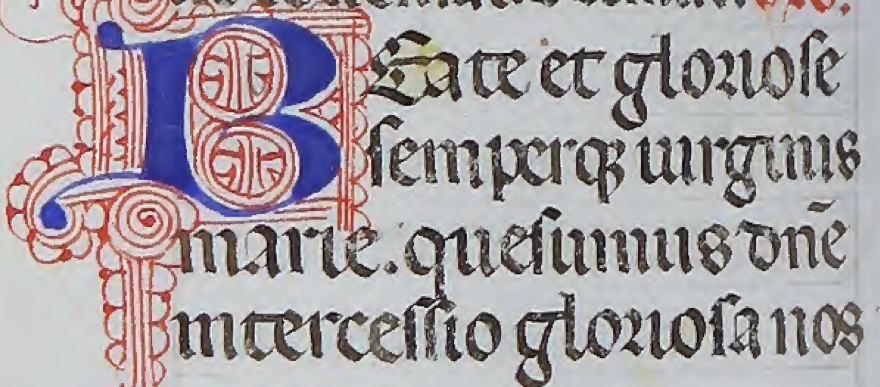 BEate et gloriose
semperq; uirginis
marie. quesumus dn̄e
intercessio gloriosa nos